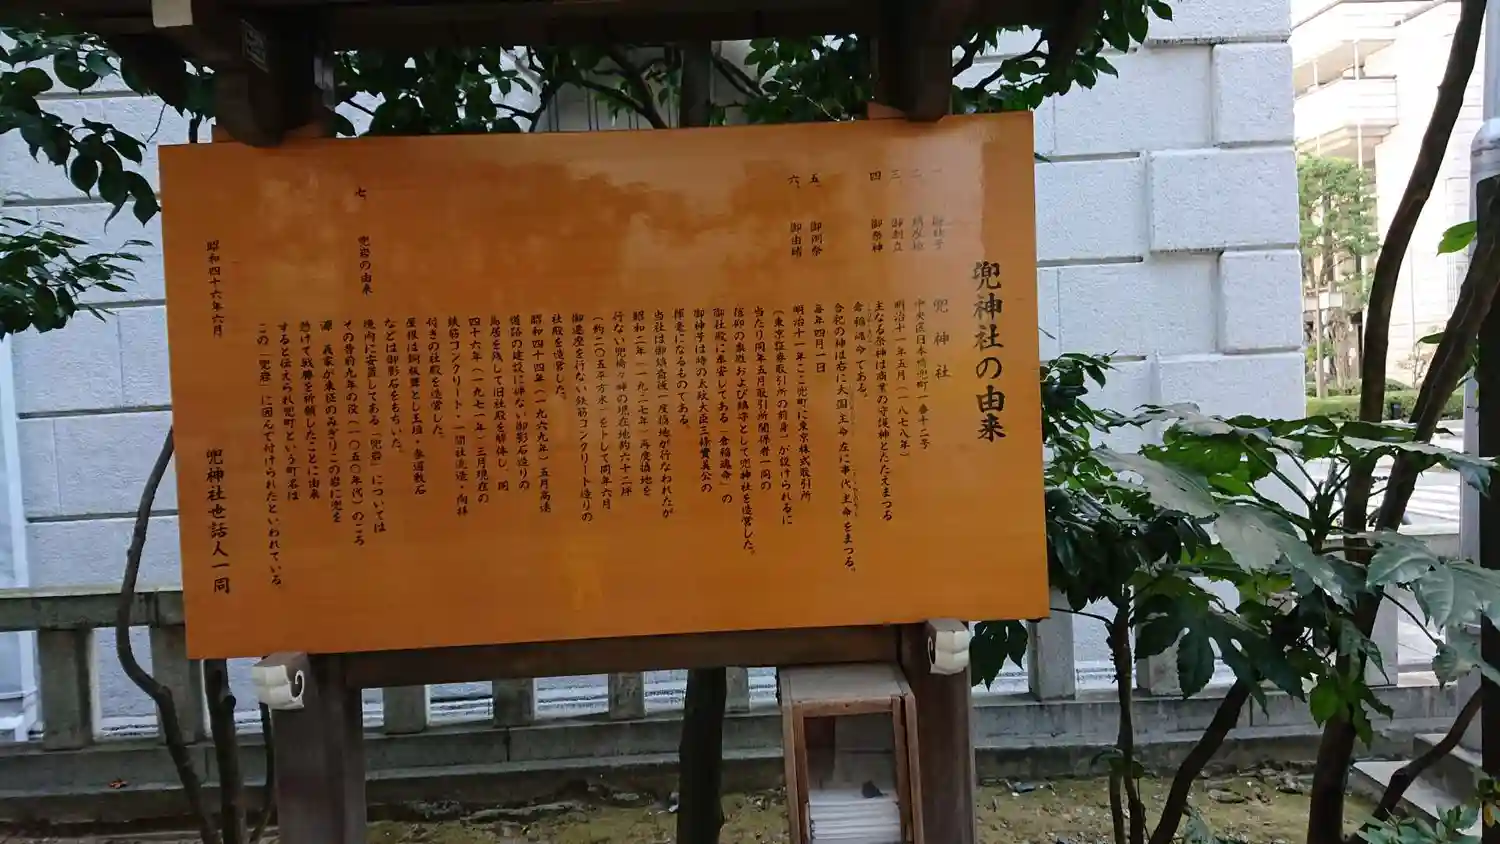 兜神社の由来
一、 御社号 兜神社
二、 鎮座地 中央区日本橋兜町一番十二号
三、 御創立 明治十一年五月（一八七八年）
四 御祭神 主なる祭神は商業の守護神とたたえまつる
倉稲魂命である。
合祀の神は右に大国主命 左に事代主命をまつる。
五、 御例祭 毎年四月一日
六、 御由緒 明治十一年ここ兜町に東京株式取引所
（東京証券取引所の前身）が設けられるに
当たり同年五月取引所関係者一同の
信仰の象徴および鎮守として兜神社を造営した。
御社殿に奉安してある「倉稲魂命」の
御神号は時の太政大臣三條實美公の
揮毫になるものである。
当社は御鎮斎後一度換地が行なわれたが
昭和二年（一九二七年）再度換地を
行ない兜橋々神の現在地約六十二坪
（約二〇五平方米）をトして同年六月
御遷座を行ない鉄筋コンクリート造りの
社殿を造営した。
昭和四十四年（一九六九年）五月高速
道路の建設に伴ない御影石造りの
鳥居を残して旧社殿を解体し、同
四十六年（一九七一年）三月現在の
鉄筋コンクリート・一間社流造・向拝
付きの社殿を造営した。
屋根は銅板葺とし玉垣・参道敷石
などは御影石をもちいた。
七、 兜岩の由来 境内に安置してある「兜岩」については
その昔前九年の役（一〇五〇年代）のころ
源 義家が東征のみぎりこの岩に兜を
懸けて戦勝を祈願したことに由来
すると伝えられ兜町という町名は
この「兜岩」に因んで付けられたといわれている
昭和四十六年六月 兜神社世話人一同